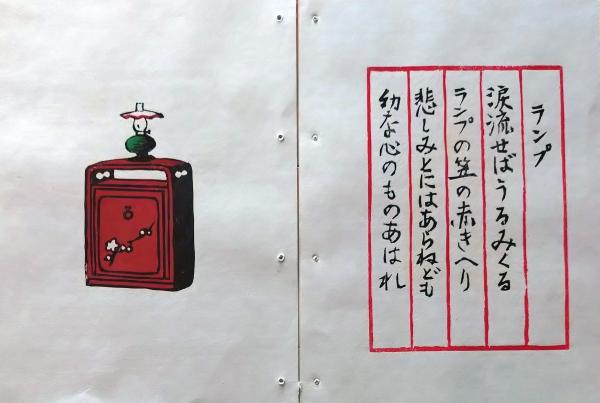 ランプ
涙流せばうるみくる
ランプの笠の赤きへり
悲しみとにはあらねども
幼な心のものあはれ